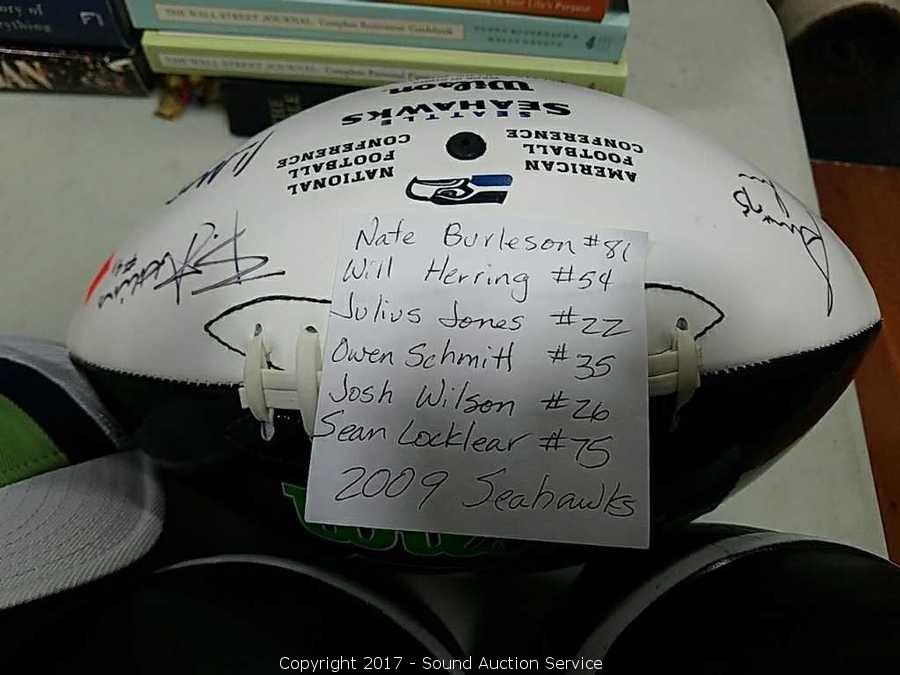 Your Life's Purpose
THE WALL STREET JOURNAL.
THE WALL STREET JOURNAL. Complete Personal
Wilson
SEATTLE
SEAHAWKS
NATIONAL
FOOTBALL
CONFERENCE
AMERICAN
FOOTBALL
CONFERENCE
75
Nate Burleson #81
Will Herring #54
Julius Jones #22
Owen Schmitt #35
Josh Wilson #26
Sean Locklear #75
2009 Seahawks
Copyright 2017 - Sound Auction Service